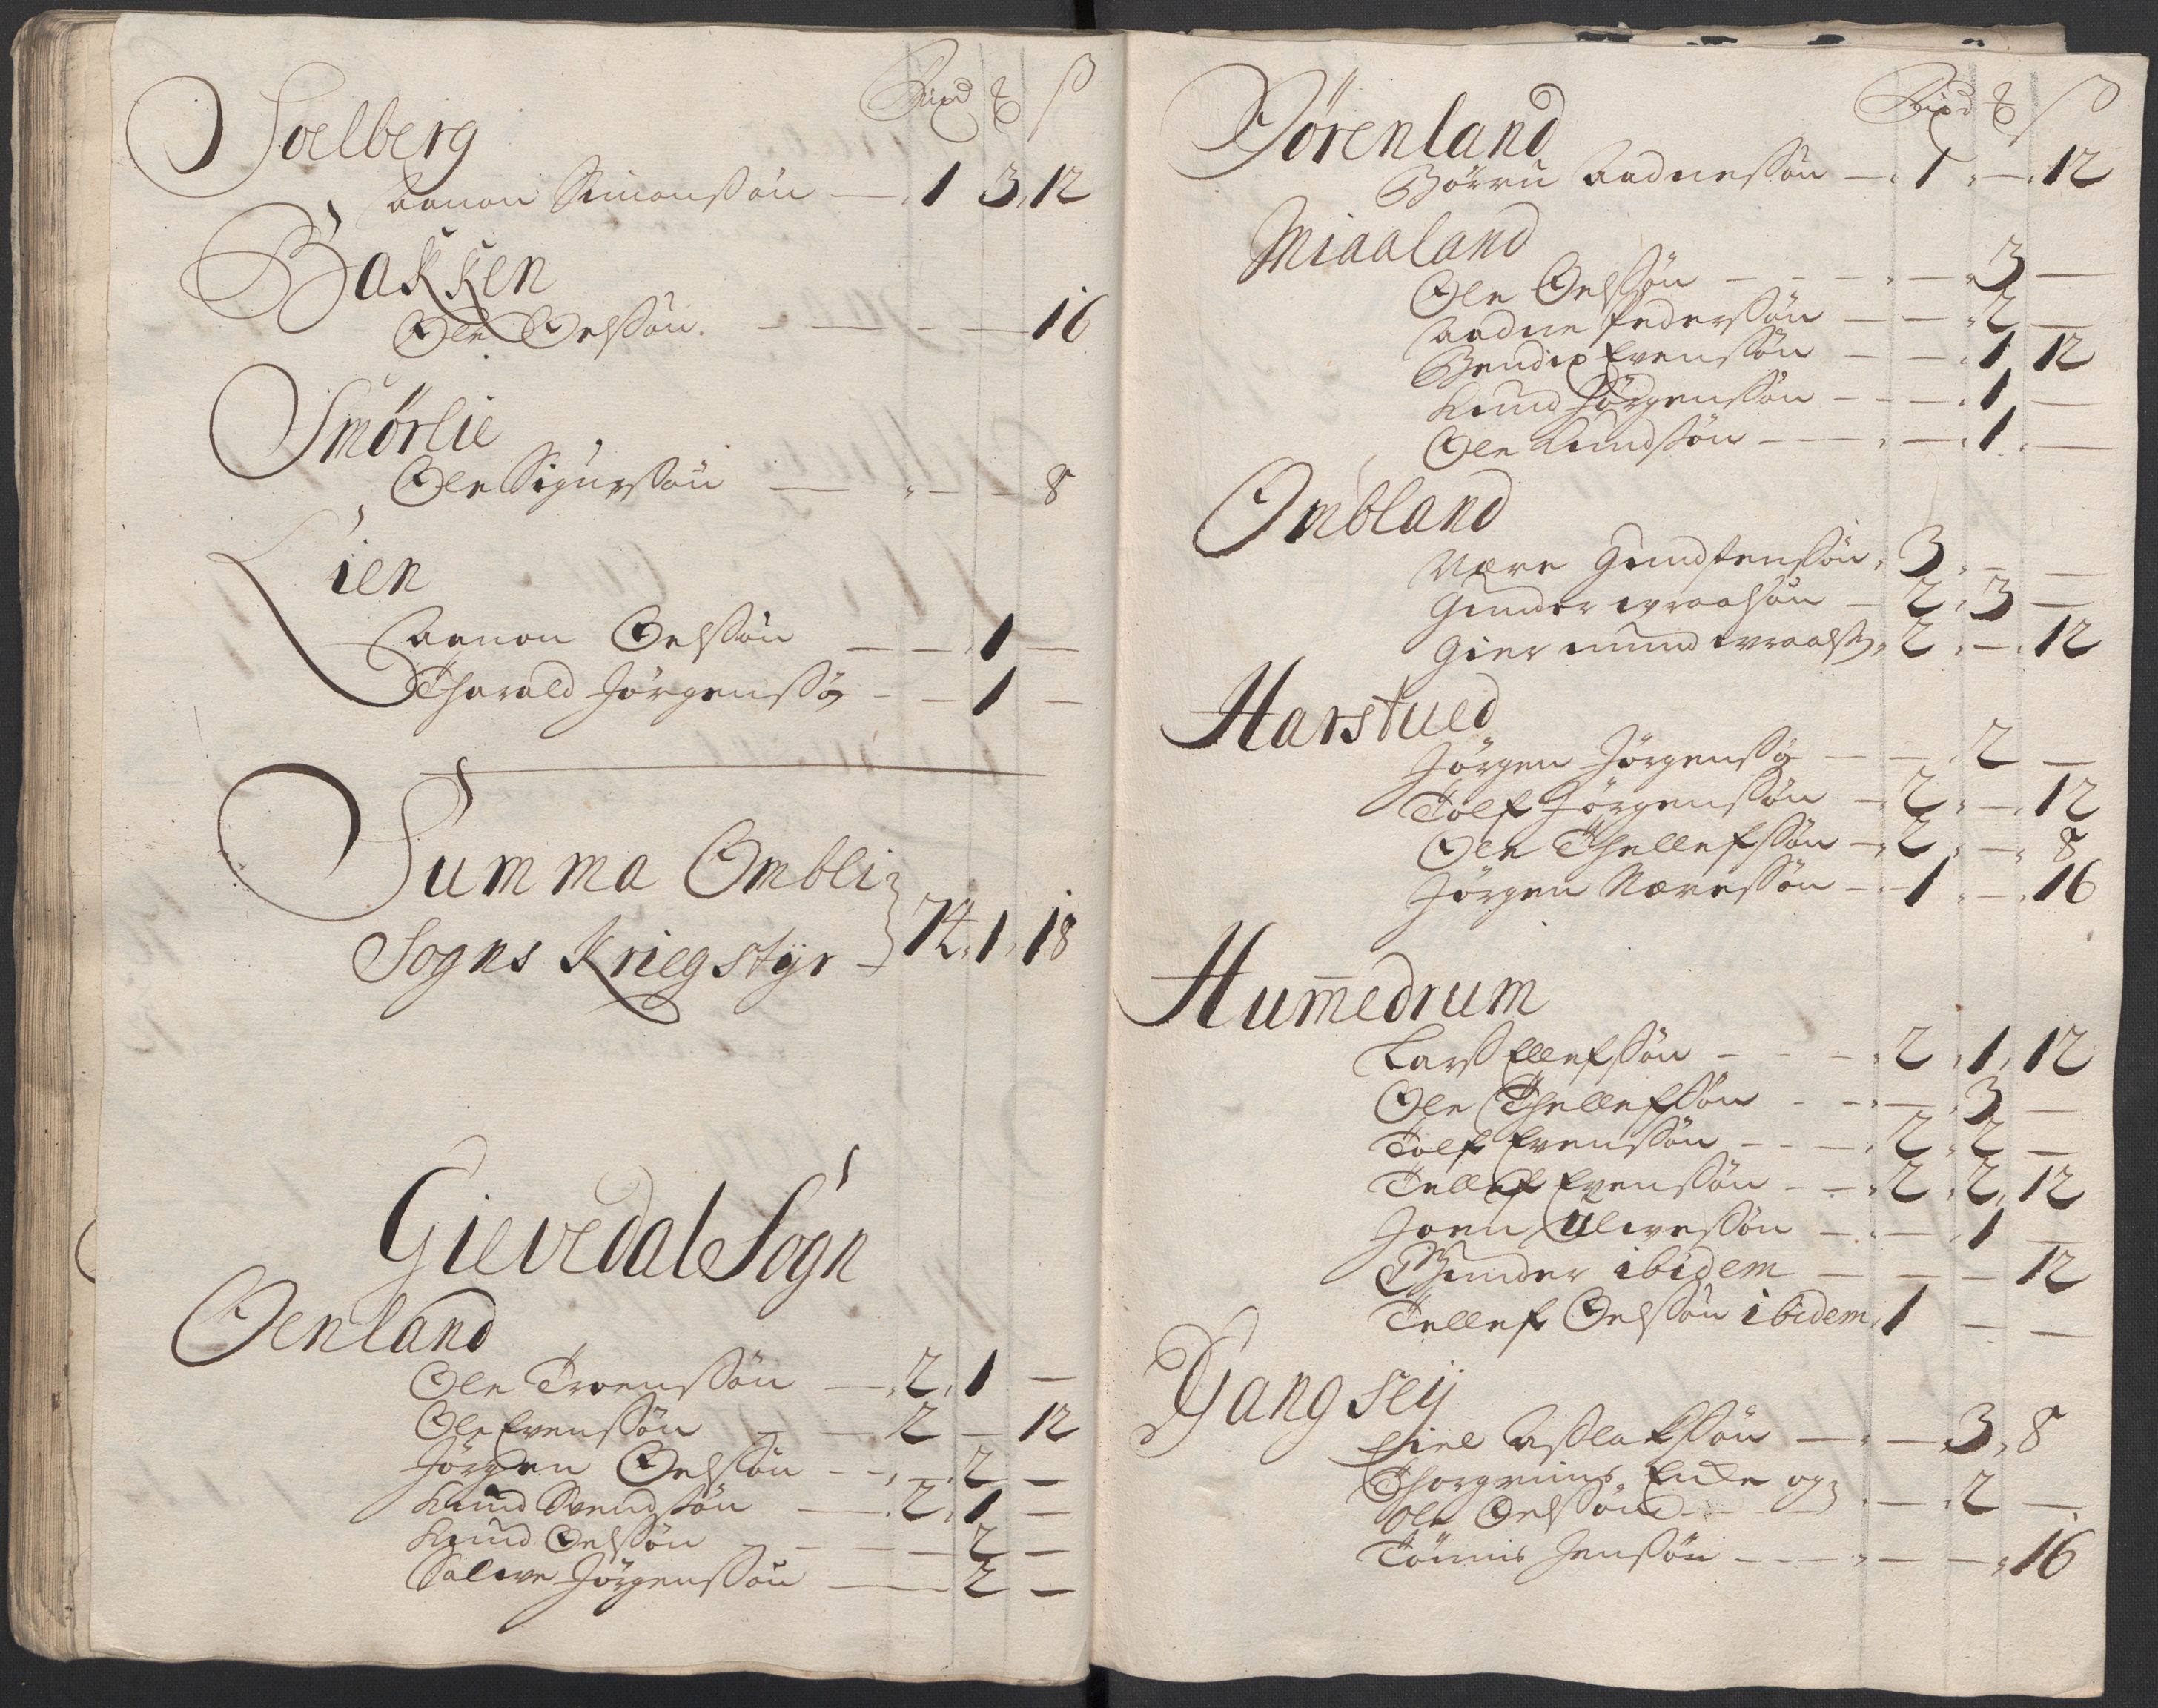 Rixd ß
Soelberg
Aanon Simonssøn — 1 3 12
Bakken
Ole Oelssøn — 16
Smörlie
Ole Sigurssøn — 8
Lien
Aanon Oelssøn — 1 —
Tharald Jørgenssø — 1 —
Summa Ombli
Sogns Kriegstyr 74 1 18
Gievedal Sogn
Oenland
Ole Troenssøn — 2 1 —
Ole Evenssøn — 2 — 12
Jørgen Oelssøn — 2 —
Knud Svendssøn — 2 1 —
Knud Oelssøn — 2 —
Salve Jørgenssøn — 2 —
Rixd ß
Dörenland
Børru Aadnessøn — 1 — 12
Miaaland
Ole Oelssøn — 3 —
Aadne Pederssøn — 2 —
Bendix Evenssøn — 1 12
Knud Jørgenssøn — 1 —
Ole Knudssøn — 1 —
Ombland
Nære Gundstenssøn 3 — —
Gunder wraalsøn — 2 3 —
Giermund wraals 2 — 12
Harstued
Jørgen Jørgenssø — 2 —
Tolf Jørgenssøn — 2 — 12
Ole Thellefssøn — 2 — 8
Jørgen Næressøn — 1 — 16
Hum̅edrum
Lars Ellefssøn — 2 1 12
Ole Thellefssøn — 3 —
Tolf Evenssøn — 2 2 —
Tellef Evenssøn — 2 2 12
Joen Ulvessøn — 1 —
Gunder ibidem — 12
Tellef Oelssøn ibidem 1 — —
Gangseij
Eiel Aslakssøn — 3 8
Thorgrims Enke og
Ole Oelssøn — 2 —
Tönnis Jenssøn — 16